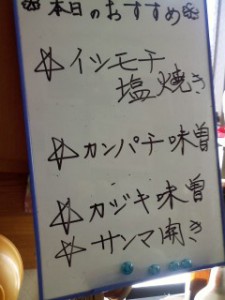 ☆本日のおすすめ☆
☆イシモチ
塩焼き
☆カンパチ味噌
☆カジキ味噌
☆サンマ開き